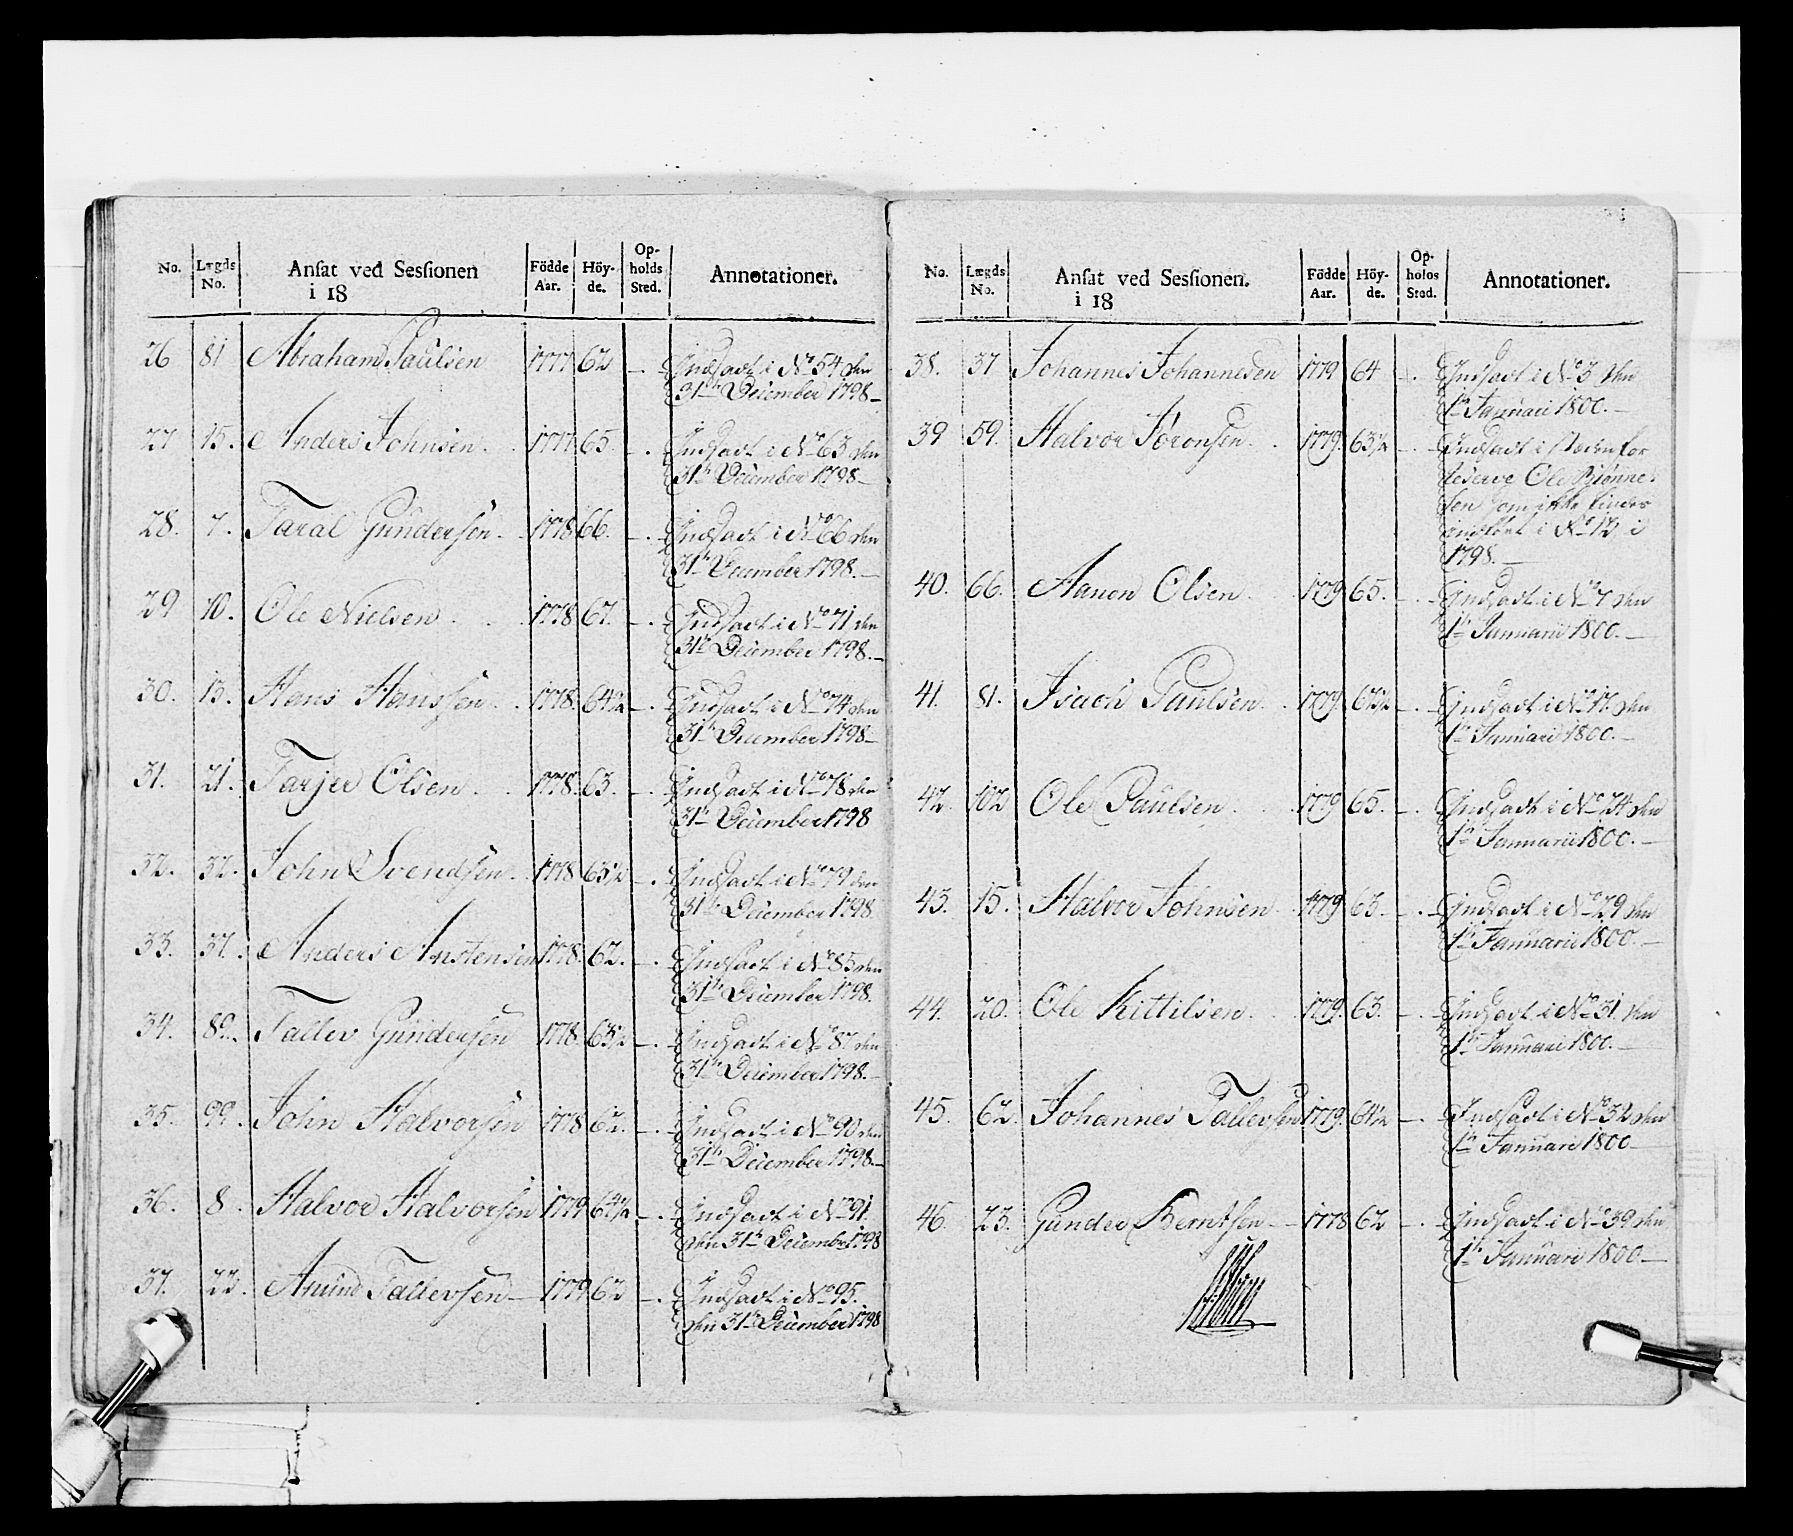 No. Lægds No. Ansat ved Sessionen i 18 Födde Aar. Höy-de. Op-holds Sted. Annotationer.
26 81 Abraham Paulsen 1777 62 –. Indsadt i No 54 den
31te December 1798.–
27 15. Anders Johnsen. 1777 65. –. Indsadt i No 63 den
31te December 1798.–
28. 7. Taral Gundersen. 1778 66. –. Indsadt i No 66 den
31te December 1798.–
29 10. Ole Nielsen. 1778 62. –. Indsadt i No 71 den
31te December 1798.–
30. 13. Hans Hanssen. 1778. 64½ –. Indsadt i No 74 den
31te December 1798–
31. 21. Tarjer Olsen. 1778. 63. –. Indsadt i No 78 den
31te December 1798
32. 32. John Svendsen. 1778 63½ –. Indsadt i No 79 den
31te December 1798.
33. 37. Anders Anstensen 1778. 62. –. Indsadt i No 83 den
31te December 1798.
34. 80. Tallev Gundersen 1778. 63½ –. Indsadt i No 87 den
31te December 1798.–
35. 99. John Halvorsen 1778 62. –. Indsadt i No 90 den
31te December 1798.–
36. 8. Halvor Halvorsen 1779 64½ –. Indsadt i No 91.
den 31te December 1798
37. 22. Amund Tallevsen– 1779 62 –. Indsadt i No 95.
den 31te December 1798
No. Lægds No. Ansat ved Sessionen. i 18 Födde Aar. Höy-de. Op-holds Sted. Annotationer.
38. 37 Johannes Johannesen 1779 64 –. Indsadt i No 3 den
1te Januari 1800.–
39 59. Halvor Joronsen. 1779. 63½ –. Indsadt i steden for
reserve Ole Biönne-
sen som ikke findes
indfört i No 12 i
1798.–
40. 66. Aanon Olsen. 1779 65. –. Indsadt i No 7 den
1te Januarii 1800.–
41. 81. Isach Paulsen. 1779. 62½ –. Indsadt i No 17. den
1te Januari 1800.–
42. 102 Ole Paulsen. 1779 65. –. Indsadt i No 24 den
1te Januarii 1800.–
43. 15. Halvor Johnsen. 1779 63. –. Indsadt i No 29 den
1te Januarii 1800.–
44. 20. Ole Kittilsen. 1779. 63. –. Indsadt i No 31. den
1te Januari 1800.–
45. 62. Johannes Tallevsen 1779. 64½ –. Indsadt i No 32 den
1te Januari 1800–
46. 23. Gunder Berntsen– 1778 62 –. Indsadt i No 39 den
1te Januari 1800.–